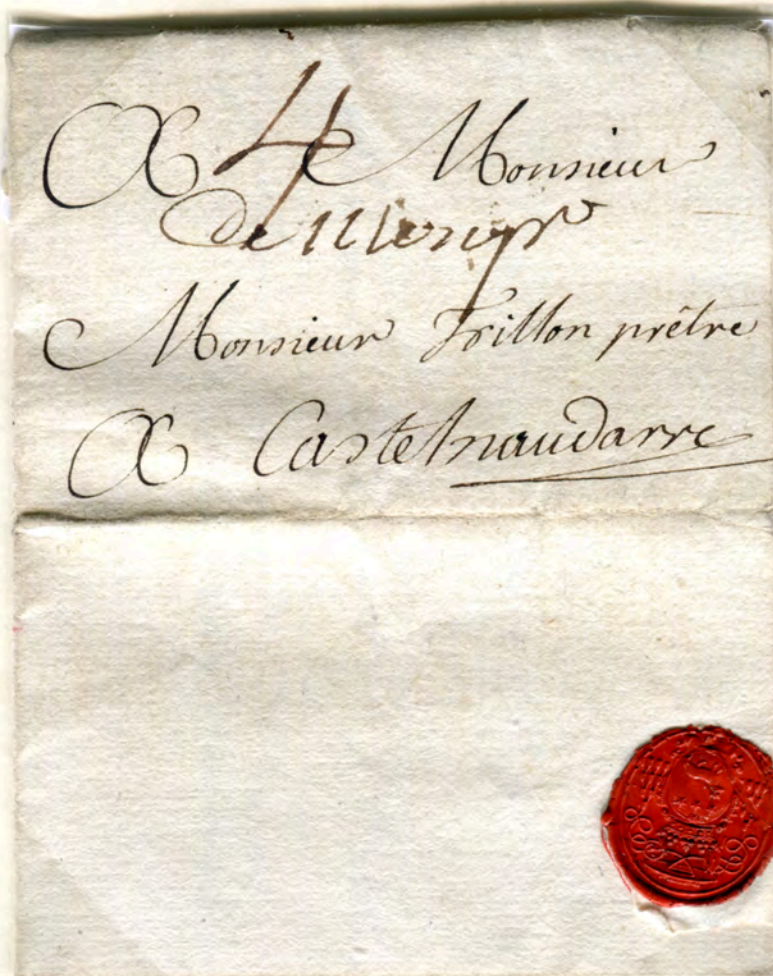 A Monsieur
4
De
Monsieur Trillon prêtre
A Castelnaudarre